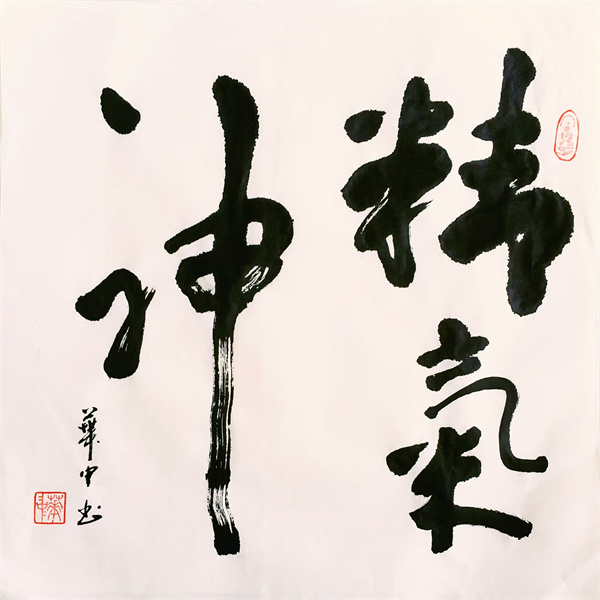 精氣
神
華中书